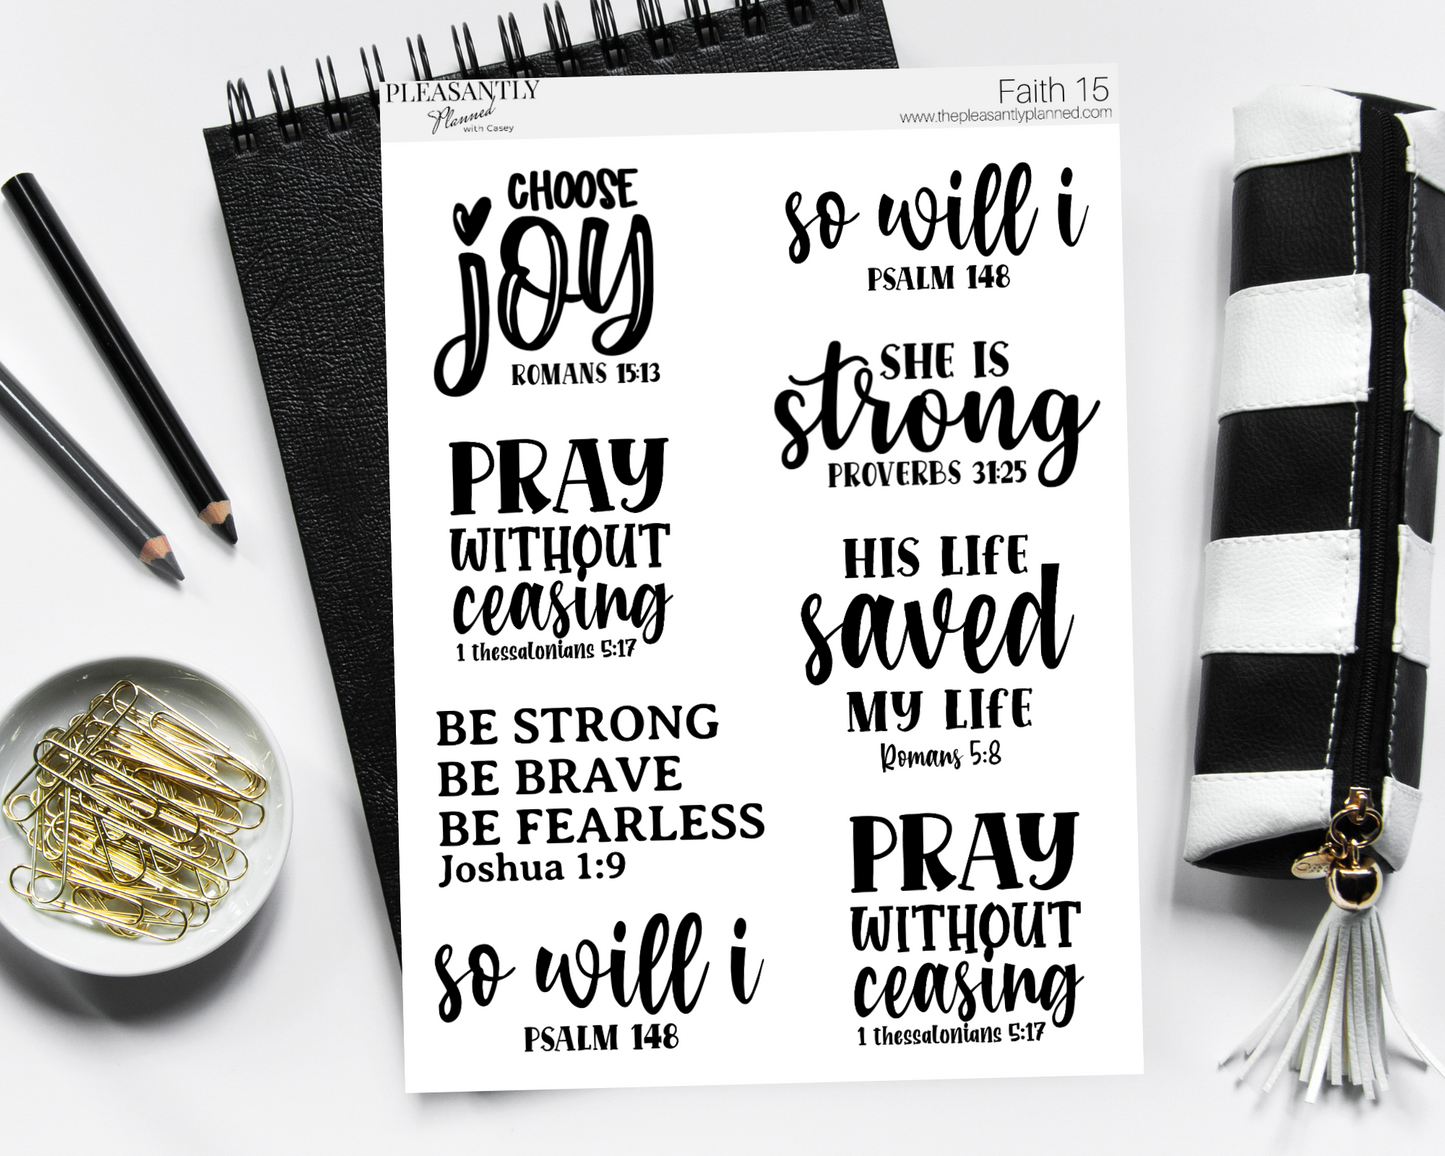 PLEASANTLY
Planned
with Casey
Faith 15
www.thepleasantlyplanned.com
CHOOSE
joy
ROMANS 15:13
PRAY
WITHOUT
ceasing
1 thessalonians 5:17
BE STRONG
BE BRAVE
BE FEARLESS
Joshua 1:9
so will i
PSALM 148
so will i
PSALM 148
SHE IS
strong
PROVERBS 31:25
HIS LIFE
saved
MY LIFE
Romans 5:8
PRAY
WITHOUT
ceasing
1 thessalonians 5:17